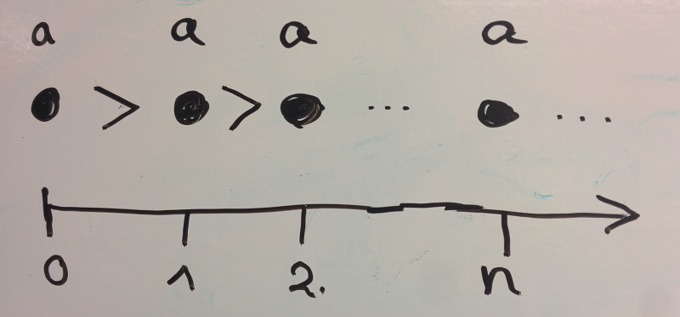 a a a a
> > ... ...
0 1 2. n